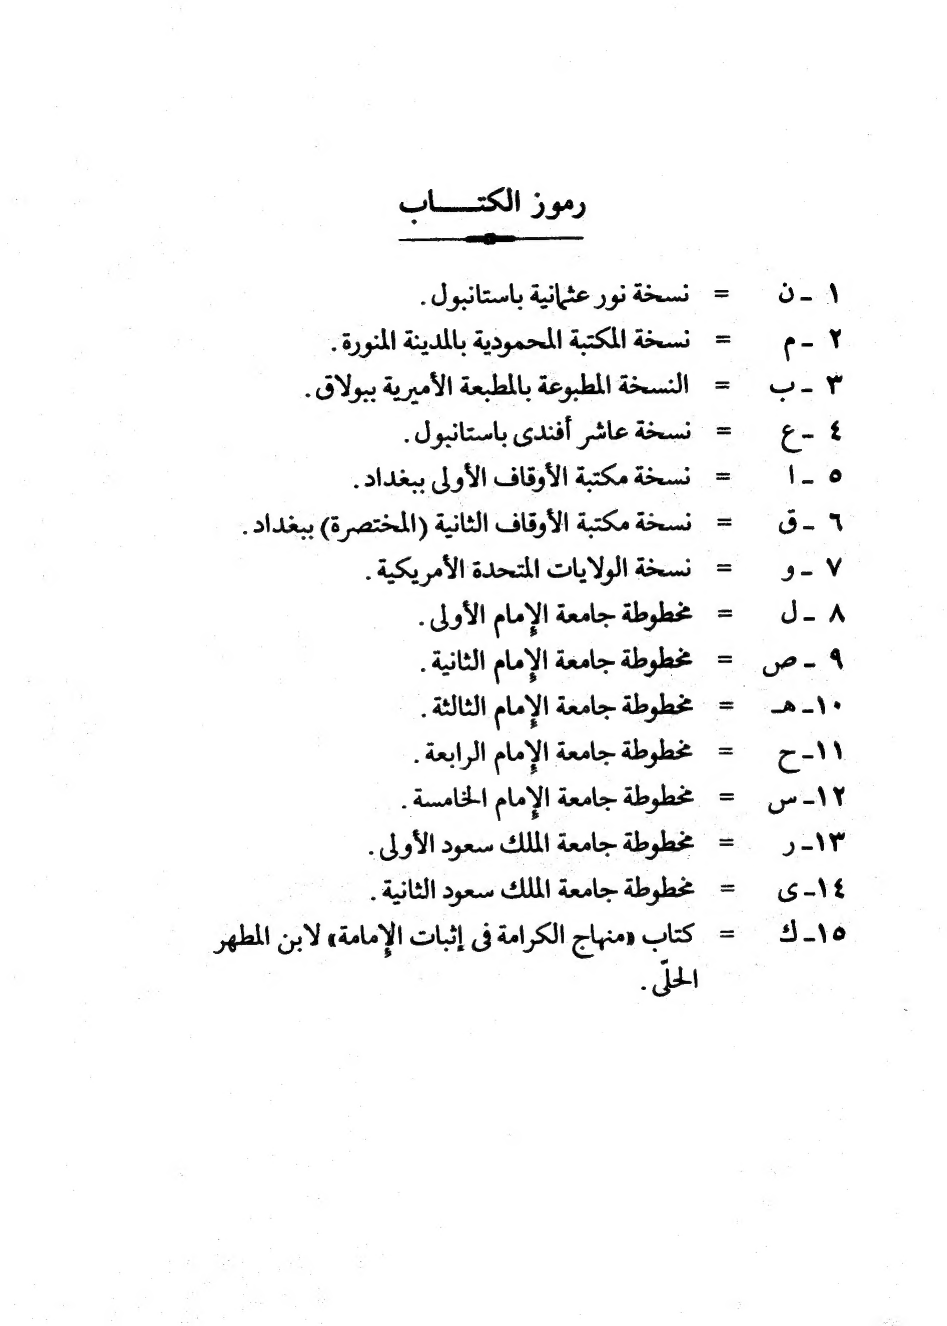 رموز الكتـــــاب
١ ـ ن = نسخة نور عثمانية باستانبول .
٢ ـ م = نسخة المكتبة المحمودية بالمدينة المنورة .
٣ ـ ب = النسخة المطبوعة بالمطبعة الأميرية ببولاق .
٤ ـ ع = نسخة عاشر أفندى باستانبول .
٥ ـ ا = نسخة مكتبة الأوقاف الأولى ببغداد .
٦ ـ ق = نسخة مكتبة الأوقاف الثانية (المختصرة) ببغداد .
٧ ـ و = نسخة الولايات المتحدة الأمريكية .
٨ ـ ل = مخطوطة جامعة الإمام الأولى .
٩ ـ ص = مخطوطة جامعة الإمام الثانية .
١٠ـ هـ = مخطوطة جامعة الإمام الثالثة .
١١ـ ح = مخطوطة جامعة الإمام الرابعة .
١٢ـ س = مخطوطة جامعة الإمام الخامسة .
١٣ـ ر = مخطوطة جامعة الملك سعود الأولى .
١٤ـ ى = مخطوطة جامعة الملك سعود الثانية .
١٥ـ ك = كتاب «منهاج الكرامة فى إثبات الإمامة» لابن المطهر
الحلّى .